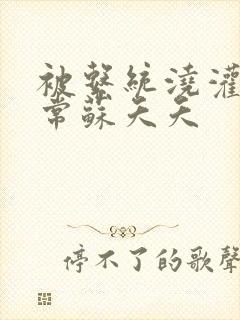 被繫統澆灌
常蘇夭夭
停不了的歌聲